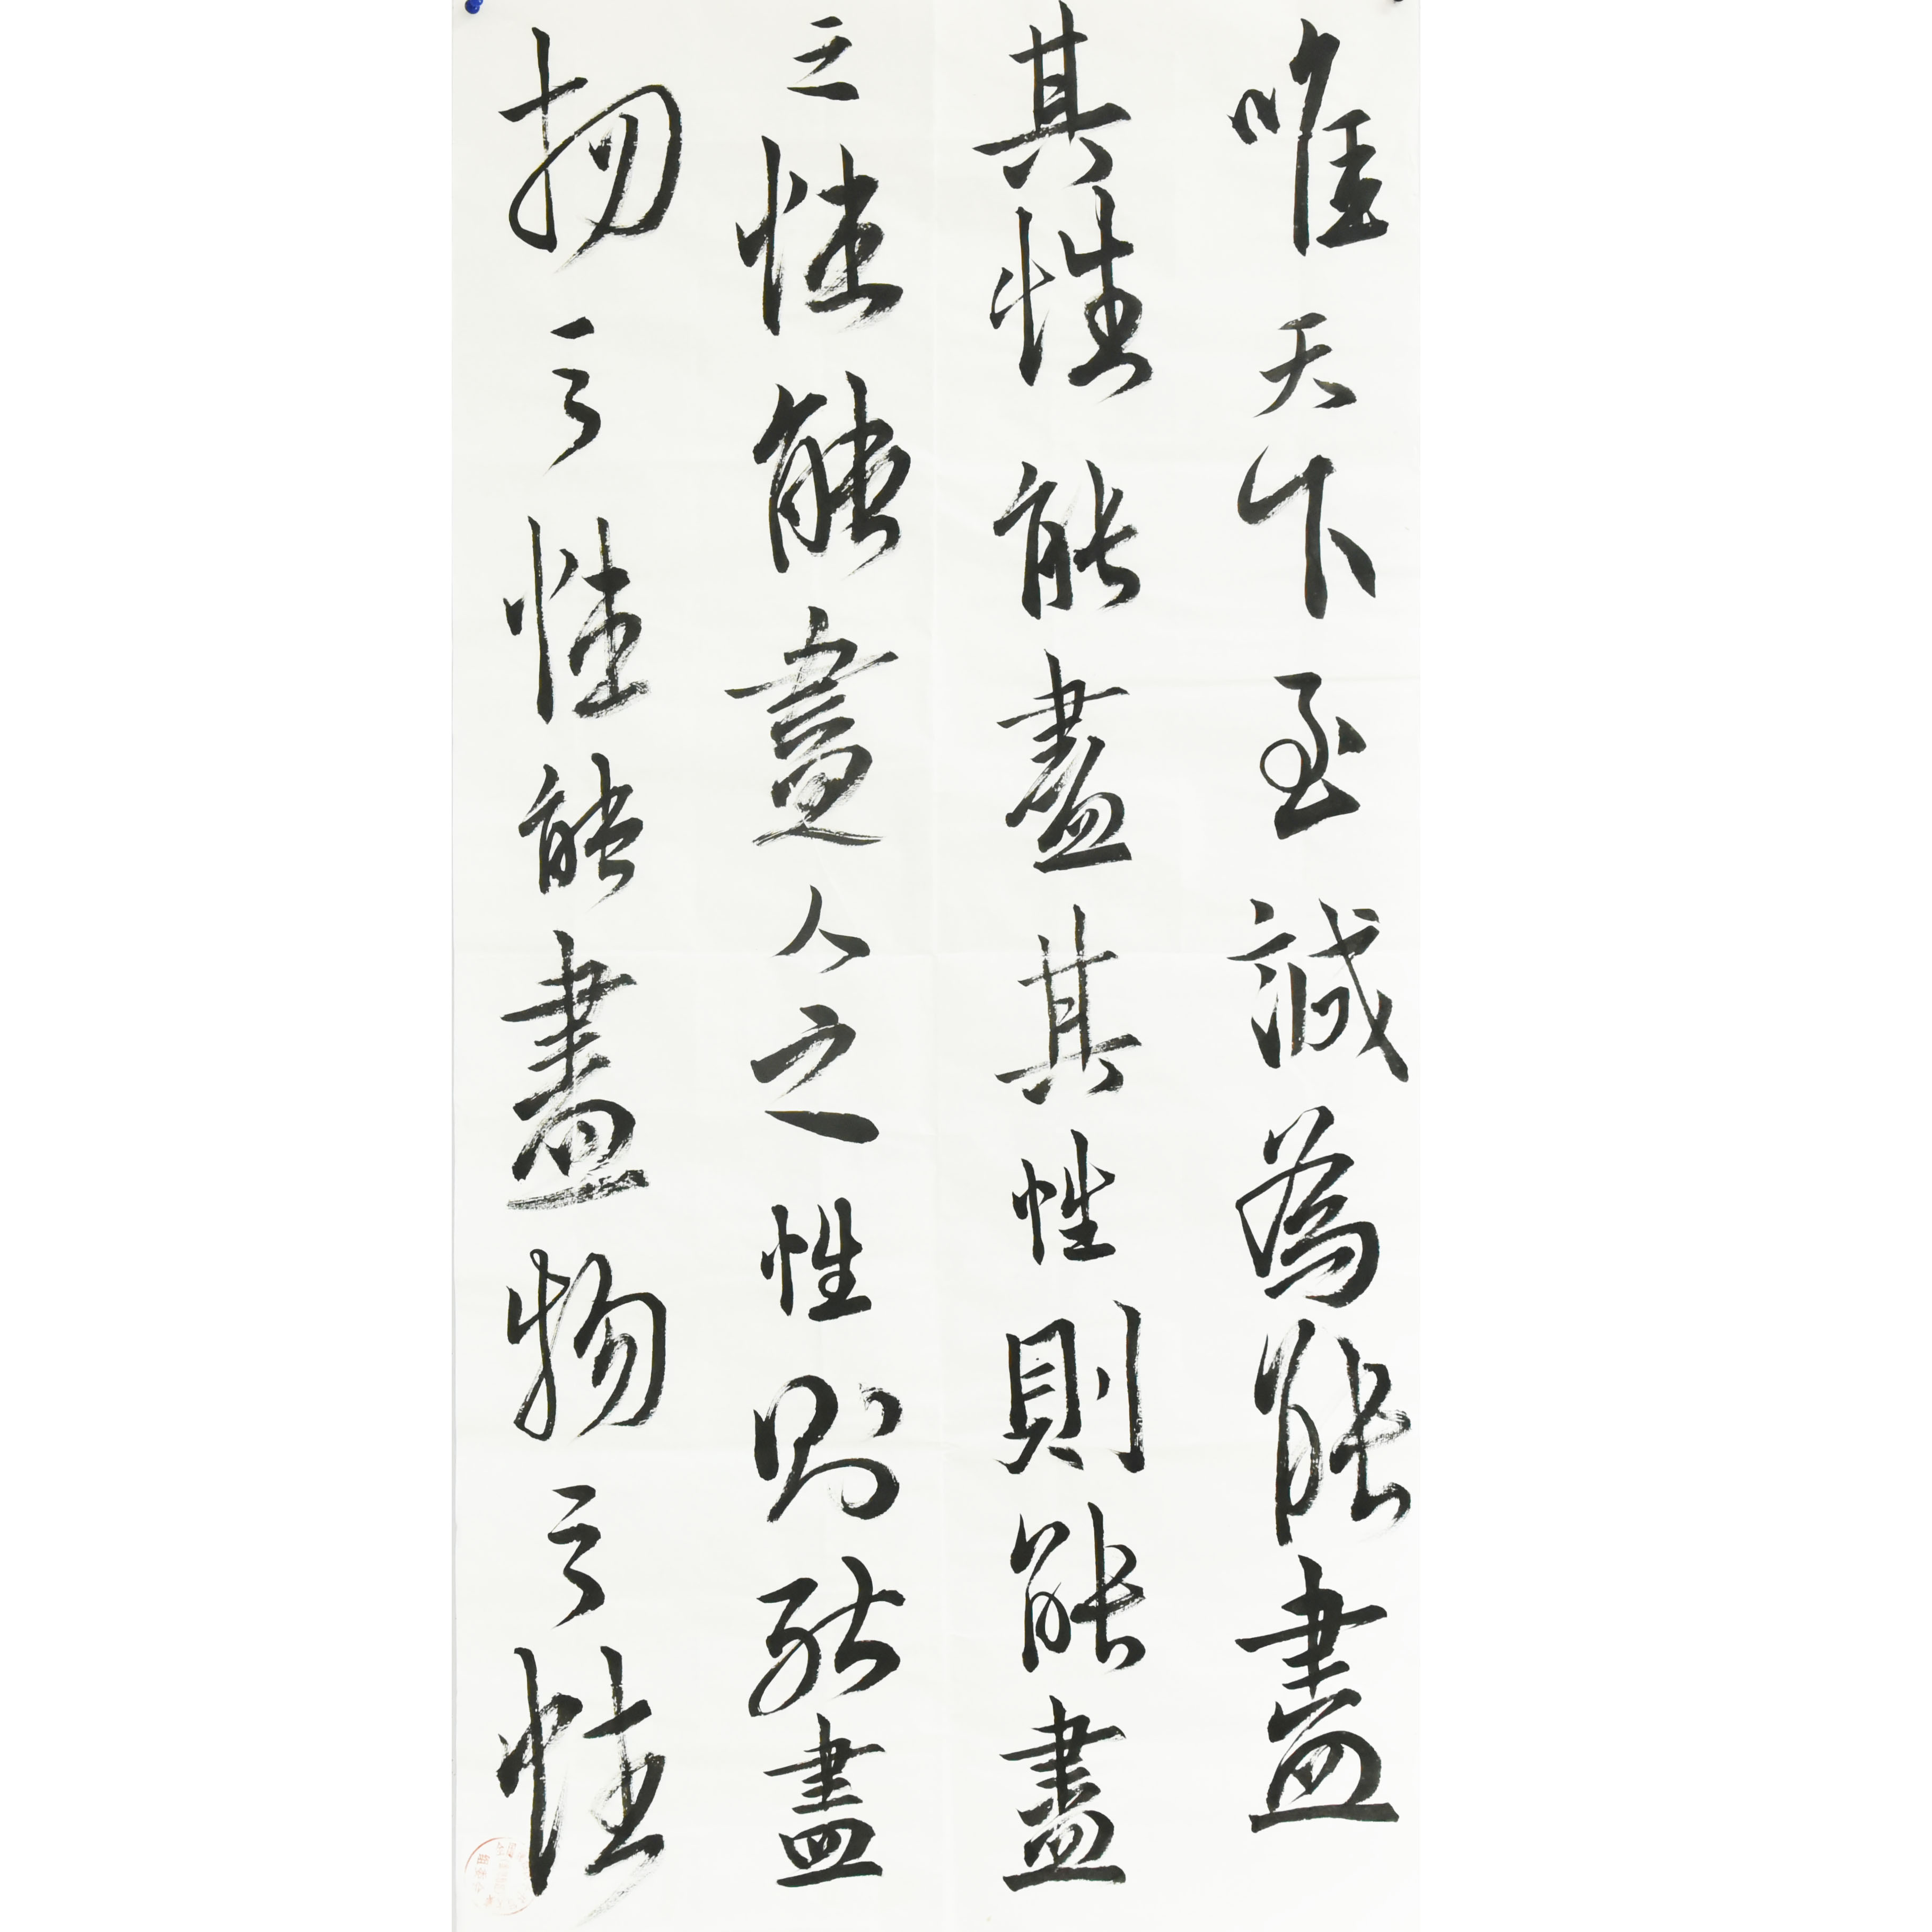 唯天下至誠為能盡
其性能盡其性則能盡
之性能盡人之性則能盡
物之性能盡物之性